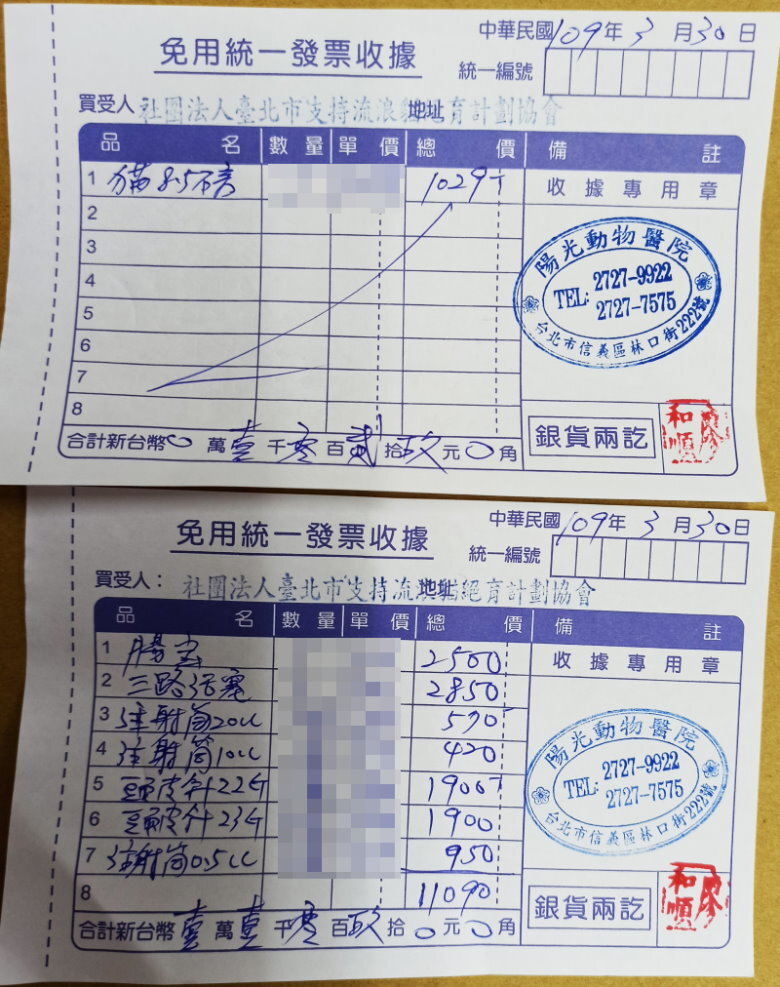 免用統一發票收據
中華民國109年3月30日
統一編號
買受人 社團法人臺北市支持流浪貓絕育計劃協會
地址
品名 數量 單價 總價 備註
1 貓8.5磅 1029 收據專用章
2
3
4
5
6
7
8
陽光動物醫院
TEL: 2727-9922
2727-7575
台北市信義區林口街222號
合計新台幣0萬壹千零百貳拾玖元0角
銀貨兩訖
廖和順
免用統一發票收據
中華民國109年3月30日
統一編號
買受人: 社團法人臺北市支持流浪貓絕育計劃協會
地址
品名 數量 單價 總價 備註
1 腸宝 2500 收據專用章
2 三路活塞 2850
3 注射筒20cc 570
4 注射筒10cc 420
5 頭皮針22G 1900
6 頭皮針23G 1900
7 注射筒0.5cc 950
8 11090
陽光動物醫院
TEL: 2727-9922
2727-7575
台北市信義區林口街222號
合計新台幣壹萬壹千零百玖拾0元0角
銀貨兩訖
廖和順